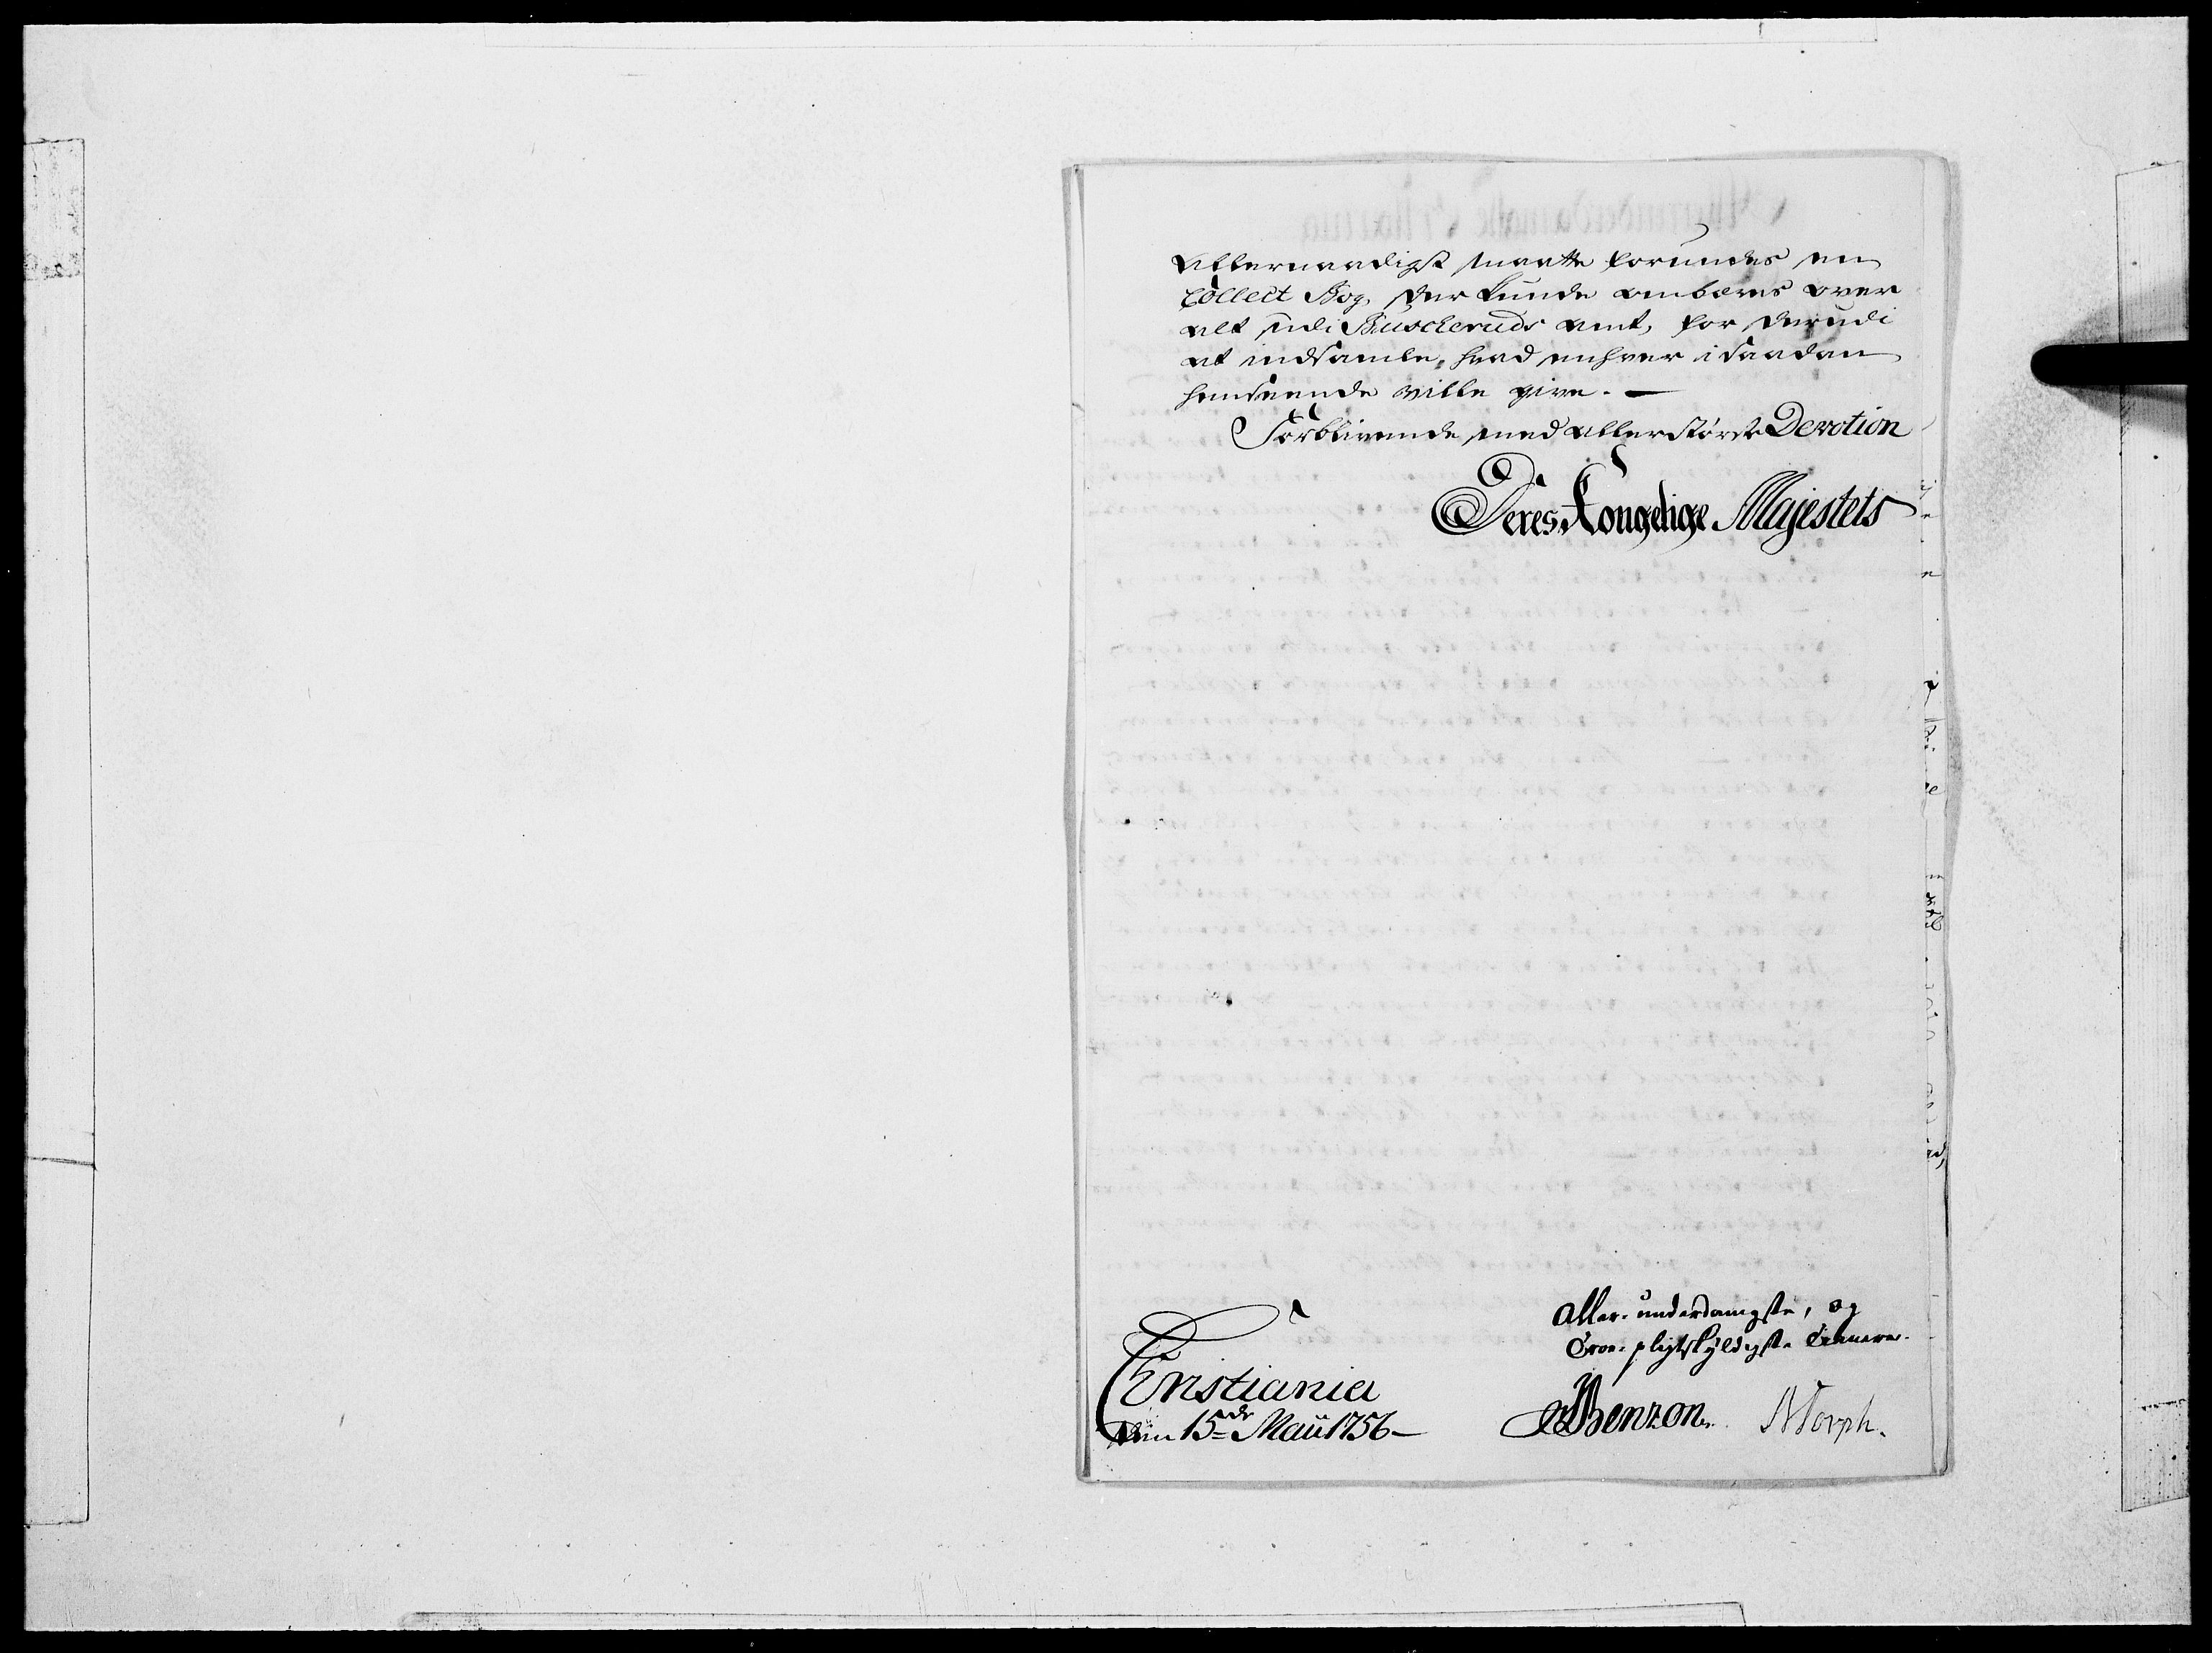 allernaadigst maatte forundes en
Collect Bog, der kunde ombæres over
alt udi Buscheruds amt, for derudi
at indsamle, hvad enhver i saadan
henseende ville give. —
Forblivende med allerstørste Devotion
Deres Kongelige Majestets
Aller-underdanigste, og
troe-pligtskyldigste tienere.
Christiania
den 15de Maii 1756 —
Benzon. NDorph.